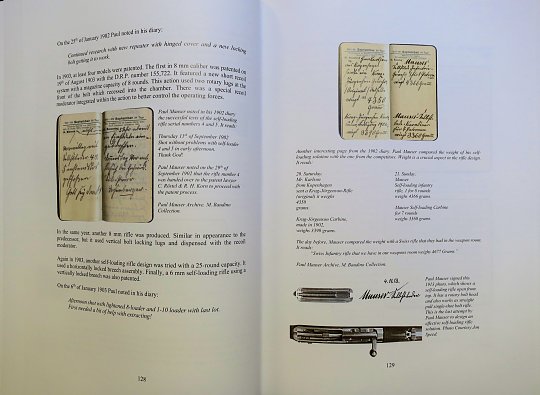 On the 25th of January 1902 Paul noted in his diary:
Continued research with new repeater with hinged cover and a new locking
bolt getting it to work.
In 1903, at least four models were patented. The first in 8 mm caliber was patented on
19th of August 1903 with the D.R.P. number 155,722. It featured a new short recoil
system with a magazine capacity of 8 rounds. This action used two rotary lugs at the
front of the bolt which recessed into the chamber. There was a special recoil
moderator integrated within the action to better control the operating forces.
Paul Mauser noted in his 1902 diary
the successful tests of the self-loading
rifle serial numbers 4 and 5. It reads:
Thursday 11th of September 1902
Shot without problems with self-loader
4 and 5 in early afternoon.
Thank God!
Paul Mauser noted on the 29th of
September 1902 that the rifle number 4
was handed over to the patent lawyer
C. Röstel & R. H. Korn to proceed with
the patent process.
Paul Mauser Archive. M. Baudino
Collection.
In the same year, another 8 mm rifle was produced. Similar in appearance to the
predecessor, but it used vertical bolt locking lugs and dispensed with the recoil
moderator.
Again in 1903, another self-loading rifle design was tried with a 25-round capacity. It
used a horizontally locked breech assembly. Finally, a 6 mm self-loading rifle using a
vertically locked breech was also patented.
On the 6th of January 1903 Paul noted in his diary:
Afternoon shot with lightened 8-loader and 1-10 loader with last lot.
First needed a bit of help with extracting!
128
Another interesting page from the 1902 diary. Paul Mauser compared the weight of his self-
loading solution with the one from the competitors. Weight is a crucial aspect in the rifle design.
It reads:
20. Saturday.
Mr. Karlson
from Kopenhagen
sent a Krag-Jörgenson-Rifle
(original) it weighs
4350
grams
Krag-Jörgenson Carbine,
made in 1902.
weighs 3390 grams.
21. Sunday.
Mauser
Self-loading infantry
rifle, 1 for 8 rounds
weighs 4366 grams
Mauser Self-loading Carbine
for 7 rounds
weighs 3360 grams
The day before, Mauser compared the weight with a Swiss rifle that they had in the weapon room.
It reads:
"Swiss Infantry rifle that we have in our weapon room weighs 4677 Grams."
Paul Mauser Archive. M. Baudino Collection.
Paul Mauser signed this
1913 photo, which shows a
self-loading rifle open from
top. It has a rotary bolt head
and also works as straight
pull single-shot bolt rifle.
This is the last attempt by
Paul Mauser to design an
effective self-loading rifle
solution. Photo Courtesy Jon
Speed.
129